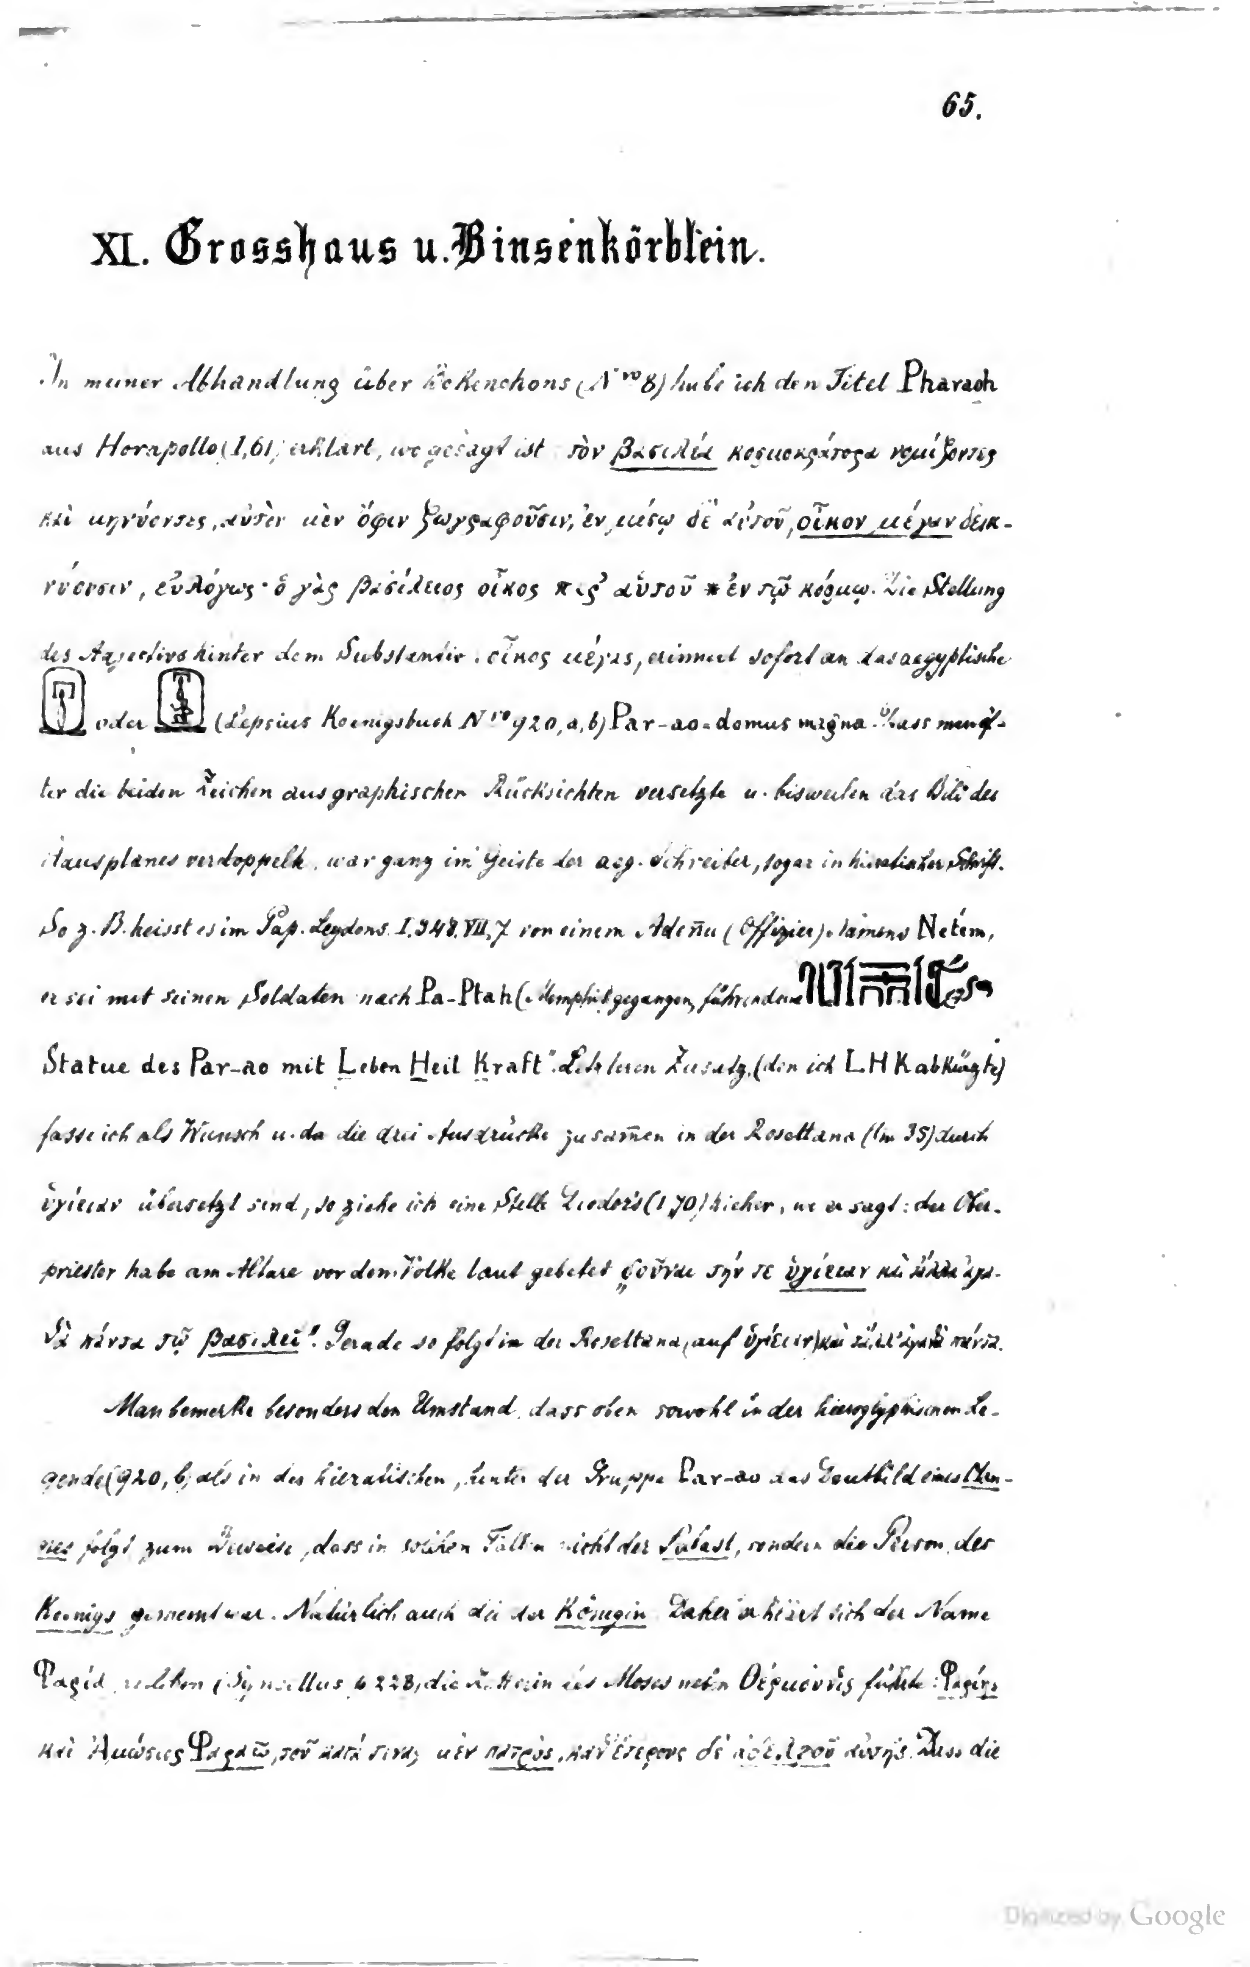 65.
XI. Grosshaus u. Binsenkörblein.
In meiner Abhandlung über Bokenchons (Nro 8) habe ich den Titel Pharaoh
aus Horapollo (I,61) erklärt, wo gesagt ist τὸν βασιλέα κοσμοκράτορα νομίζοντες
καὶ μηνύοντες, αὐτὸν μὲν ὄφιν ζωγραφοῦσιν, ἐν μέσῳ δὲ αὐτοῦ, οἶκον μέγαν δεικ-
νύουσιν, εὐλόγως· ὁ γὰρ βασίλειος οἶκος παρ' αὐτοῦ * ἐν τῷ κόσμῳ. Die Stellung
des Adjectivs hinter dem Substantiv: οἶκος μέγας, erinnert sofort an das aegyptische
oder (Lepsius Koenigsbuch Nro 920, a, b) Par-ao = domus magna. Dass man öf-
ter die beiden Zeichen aus graphischen Rücksichten versetzte u. bisweilen das Bild des
Hausplanes verdoppelte, war ganz im Geiste der aeg. Schreiber, sogar in hieratischer Schrift.
So z. B. heisst es im Pap. Leydens. I. 348. VII, 7 von einem Adenu (Offizier) Namens Netem,
er sei mit seinen Soldaten nach Pa-Ptah (Memphis) gegangen, führend eine
Statue des Par-ao mit Leben Heil Kraft". Letzteren Zusatz, (den ich L H K abkürzte)
fasse ich als Wunsch u. da die drei Ausdrücke zusam̄en in der Rosettana (lin 35) durch
ὑγίειαν übersetzt sind, so ziehe ich eine Stelle Diodor's (I 70) hieher, wo er sagt: der Ober-
priester habe am Altare vor dem Volke laut gebetet „δοῦναι τήν τε ὑγίειαν καὶ τἄλλα ἀγα-
θὰ πάντα τῷ βασιλεῖ". Gerade so folgt in der Rosettana (auf ὑγίειαν) καὶ τἄλλ' ἀγαθὰ πάντα.
Man bemerke besonders den Umstand, dass oben sowohl in der hieroglyphischen Le-
gende (920, b) als in der hieratischen, hinter der Gruppe Par-ao das Deutbild eines Man-
nes folgt zum Beweise, dass in solchen Fällen nicht der Palast, sondern die Person des
Koenigs gemeint war. Natürlich auch die der Königin. Daher erklärt sich der Name
Φαρίη, welchen (Syncellus p 228) die des Moses neben Θέρμουθις führte: Φαρίης
καὶ Ἀμώσεως Φαραῶ, τοῦ κατά τινας μὲν πατρὸς, καθ' ἑτέρους δὲ ἀδελφοῦ αὐτῆς. Dass die
Digitized by Google